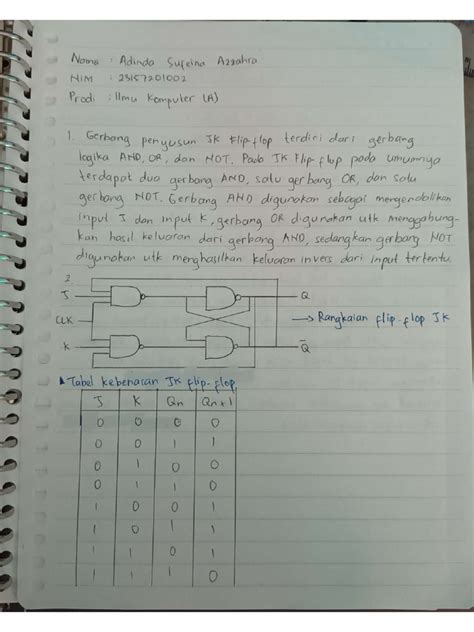 Nama : Adinda Sufeina Azzahra
NIM : 23157201002
Prodi : Ilmu Komputer (A)
1. Gerbang penyusun JK Flip-flop terdiri dari gerbang
logika AND, OR, dan NOT. Pada JK Flip-flop pada umumnya
terdapat dua gerbang AND, satu gerbang OR, dan satu
gerbang NOT. Gerbang AND digunakan sebagai mengendalikan
input J dan input K, gerbang OR digunakan utk menggabung-
kan hasil keluaran dari gerbang AND, sedangkan gerbang NOT
digunakan utk menghasilkan keluaran invers dari input tertentu.
2.
J Q
CLK → Rangkaian flip-flop JK
K Q̅
Tabel kebenaran JK flip-flop
J K Qn Qn+1
0 0 0 0
0 0 1 1
0 1 0 0
0 1 1 0
1 0 0 1
1 0 1 1
1 1 0 1
1 1 1 0